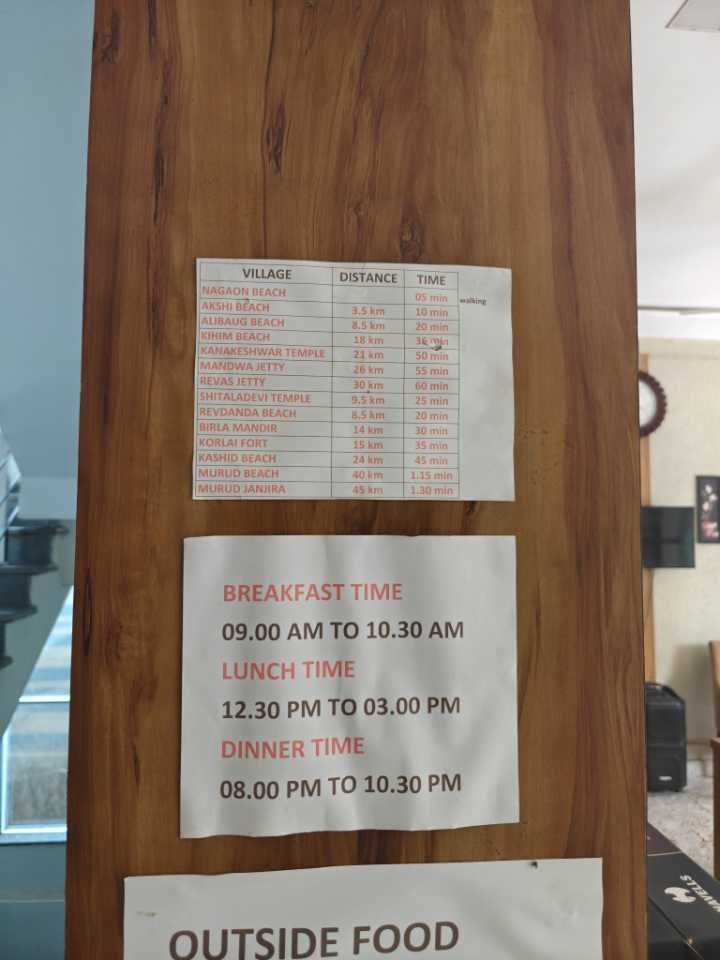 VILLAGE DISTANCE TIME
NAGAON BEACH 05 min walking
AKSHI BEACH 3.5 km 10 min
ALIBAUG BEACH 8.5 km 20 min
KIHIM BEACH 18 km 36 min
KANAKESHWAR TEMPLE 21 km 50 min
MANDWA JETTY 26 km 55 min
REVAS JETTY 30 km 60 min
SHITALADEVI TEMPLE 9.5 km 25 min
REVDANDA BEACH 8.5 km 20 min
BIRLA MANDIR 14 km 30 min
KORLAI FORT 15 km 35 min
KASHID BEACH 24 km 45 min
MURUD BEACH 40 km 1.15 min
MURUD JANJIRA 45 km 1.30 min
BREAKFAST TIME
09.00 AM TO 10.30 AM
LUNCH TIME
12.30 PM TO 03.00 PM
DINNER TIME
08.00 PM TO 10.30 PM
OUTSIDE FOOD
HAVELLS